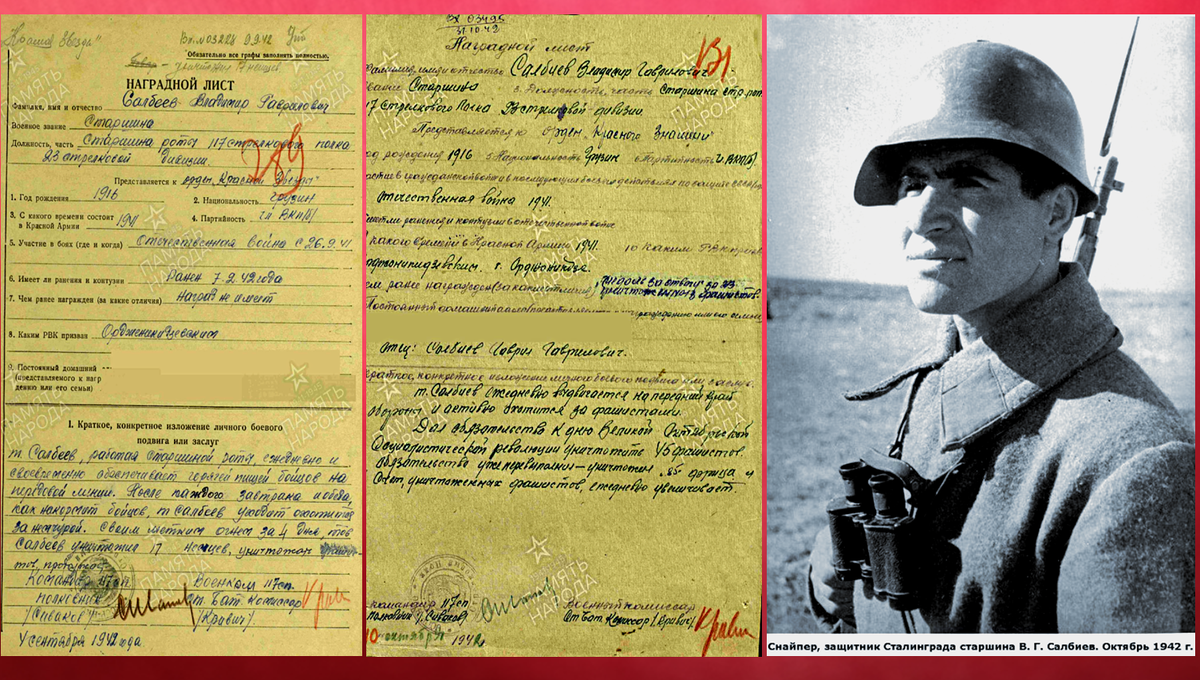 "Красная Звезда"
Вх. №03228 9.9.42
Обязательно все графы заполнить полностью.
НАГРАДНОЙ ЛИСТ
Фамилия, имя и отчество Салбеев Владимир
Военное звание Старшина
Должность, часть Старшина роты 117 стрелкового полка
23 стрелковой дивизии.
Представляется к орден „Красной Звезды"
1. Год рождения 1916
2. Национальность грузин
3. С какого времени состоит в Красной Армии 1941
4. Партийность чл ВКП(б)
5. Участие в боях (где и когда) Отечественная война с 26.9.41
6. Имеет ли ранения и контузии Ранен 7.2.42 года
7. Чем ранее награжден (за какие отличия) Наград не имеет
8. Каким РВК призван
9. Постоянный домашний
(представляемого к наг
дению или его семьи)
I. Краткое, конкретное изложение личного боевого
подвига или заслуг
т. Салбеев, работая старшиной роты, ежедневно и
своевременно обеспечивает горячей пищей бойцов на
передовой линии. После каждого завтрака и обеда,
как накормит бойцов, т. Салбеев уходит охотиться
за немчурой. Своим метким огнем за 4 дня тов
Салбеев уничтожил 17 немцев, уничтожен
Командир 117 сп
Военком 117 сп.
Полковник
Ст. Бат. Комиссар
/Сиваков/
/Кравич/.
4 сентября 1942 года
Вх 03495
31.10.42
Наградной лист
Фамилия, имя и отчество Салбиев Владимир Гаврилович
звание Старшина 3. Должность, часть Старшина стр. рот
117 стрелкового полка 23 стрелковой дивизии.
Представляется к орден „Красного Знамени"
Год рождения 1916 5. Национальность Грузин 6. Партийность чл ВКП(б)
Отечественная война 1941.
Имеет ли ранения и контузии в отечественной войне
С какого времени в Красной Армии 1941. 10 Каким РВК призван
Орджоникидзевским. г. Орджоникидзе.
Чем ранее награжден (за какие отличия) „Медаль за отвагу" за 23
уничтоженных фашистов.
Постоянный домашний адрес
Отец: Салбиев Гаврил Гаврилович.
Краткое, конкретное изложение личного боевого подвига или заслуг.
т. Салбиев ежедневно выдвигается на передний край
обороны и активно охотится за фашистами.
Дал обязательство к дню Великой Октябрьской
Социалистической революции уничтожить 45 фашистов
обязательства уже перевыполнил – уничтожил 55 фрица и
счет, уничтоженных фашистов, ежедневно увеличивает.
Командир 117 сп
Военный комиссар
Полковник /Сиваков/
Ст Бат Комиссар /Кравич/
10 октября 1942
Снайпер, защитник Сталинграда старшина В. Г. Салбиев. Октябрь 1942 г.